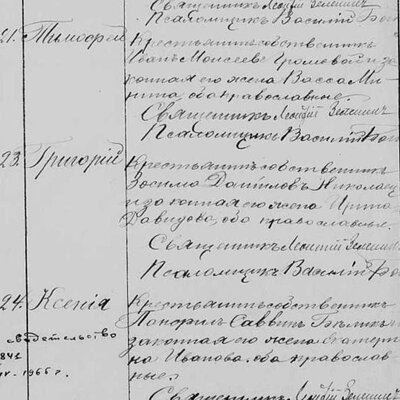 Священникъ Леонтій Зелинс
Псаломщикъ Василій
21. Тимофей
Крестьянинъ собственникъ
Иванъ Моисеевъ Громовой и за
конная его жена Васса Ми
нина оба православные.
Священникъ Леонтій Зелинс
Псаломщикъ Василій
23. Григорій
Крестьянинъ собственникъ
Зосима Даниловъ Николаец
и законная его жена Ирина
Давидова, оба православные.
Священникъ Леонтій Зелинс
Псаломщикъ Василій
24. Ксенія
Крестьянинъ собственникъ
Памфилъ Саввинъ и
законная его жена Екатери
на Иванова, оба православ
ные.
свидетельство
1966 г.
Священникъ Леонтій Зелинс